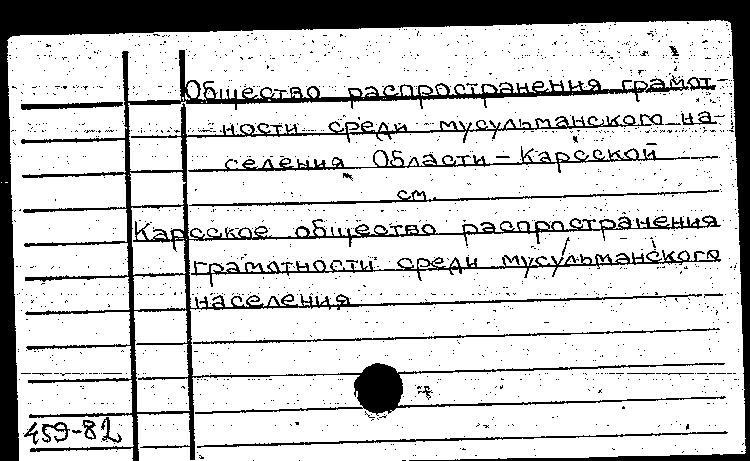 Общество распространения грамот-
ности среди мусульманского на-
селения Области - Карсской
см.
Карсское общество распространения
грамотности среди мусульманского
населения
459-82